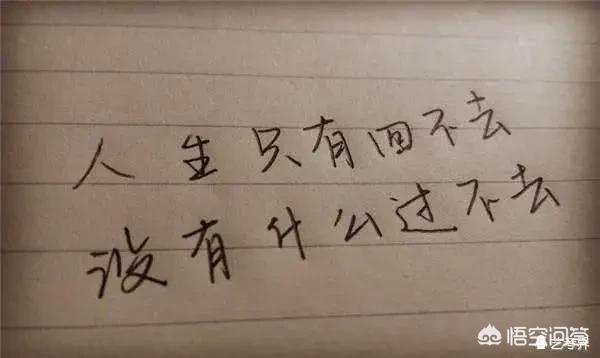 人生只有回不去
没有什么过不去
悟空问答
艺考界